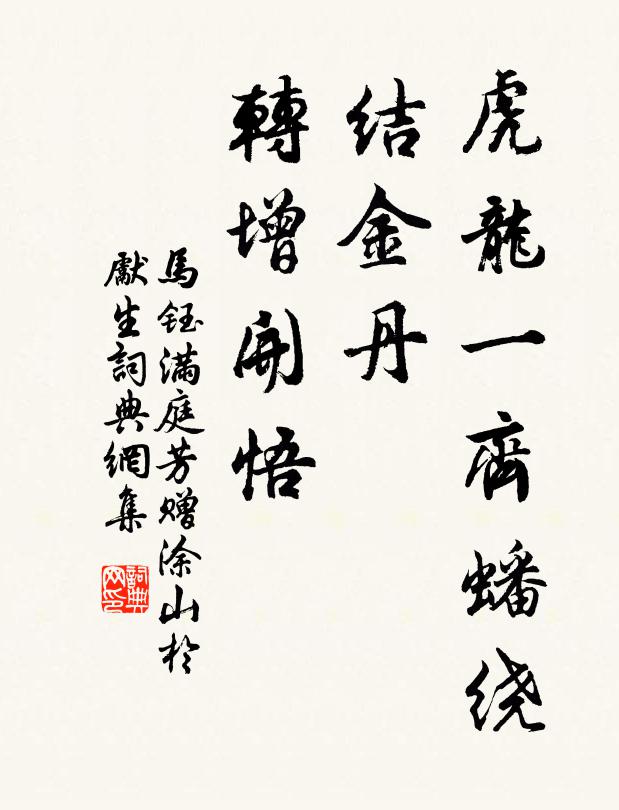 虎龍一齊蟠绕
结金丹
轉增開悟
馬钰满庭芳赠涂山於
獻生詞典網集
詞典网印